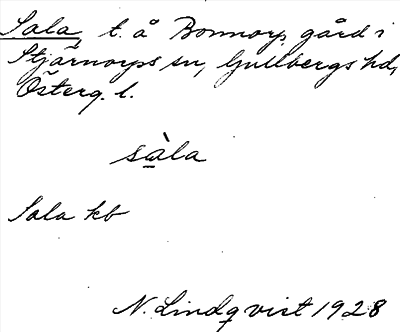 Sala t. å Bonnorp, gård i
Stjärnorps sn, Gullbergs hd,
Österg. l.
sàla
Sala kb
N. Lindqvist 1928